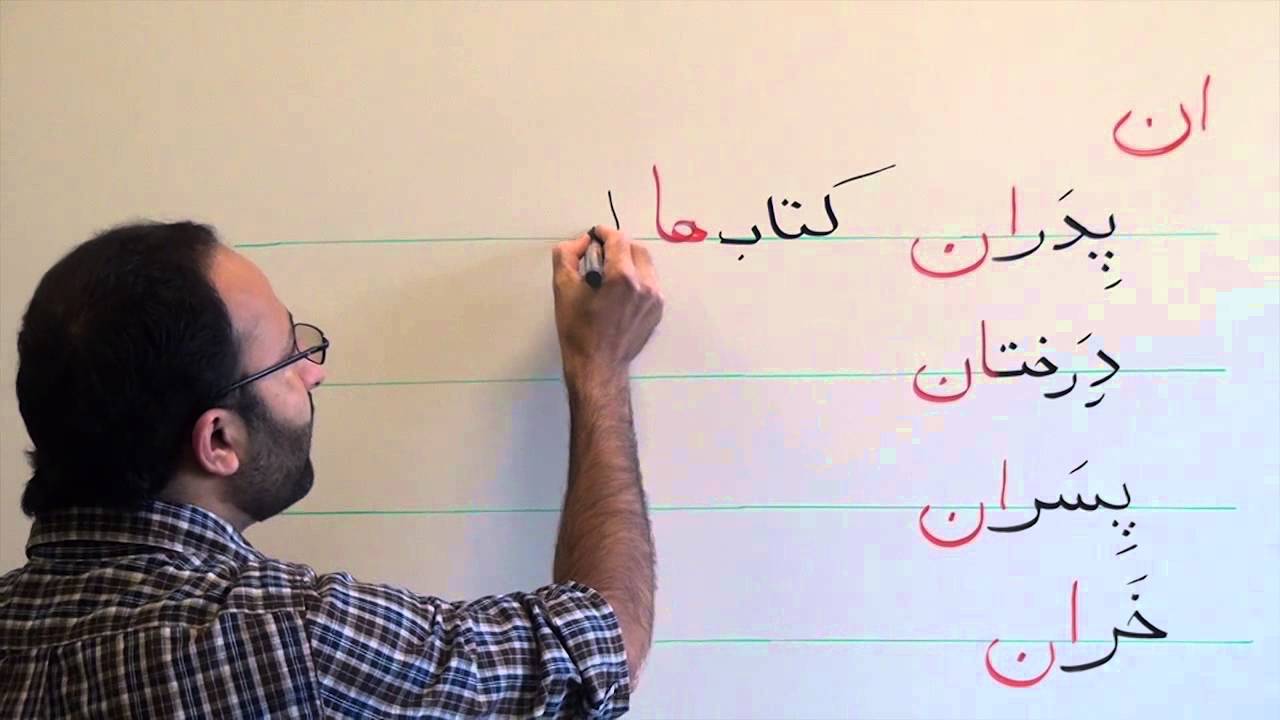 ان
پِدَران کتاب‌ها
دِرَختان
پِسَران
خَران